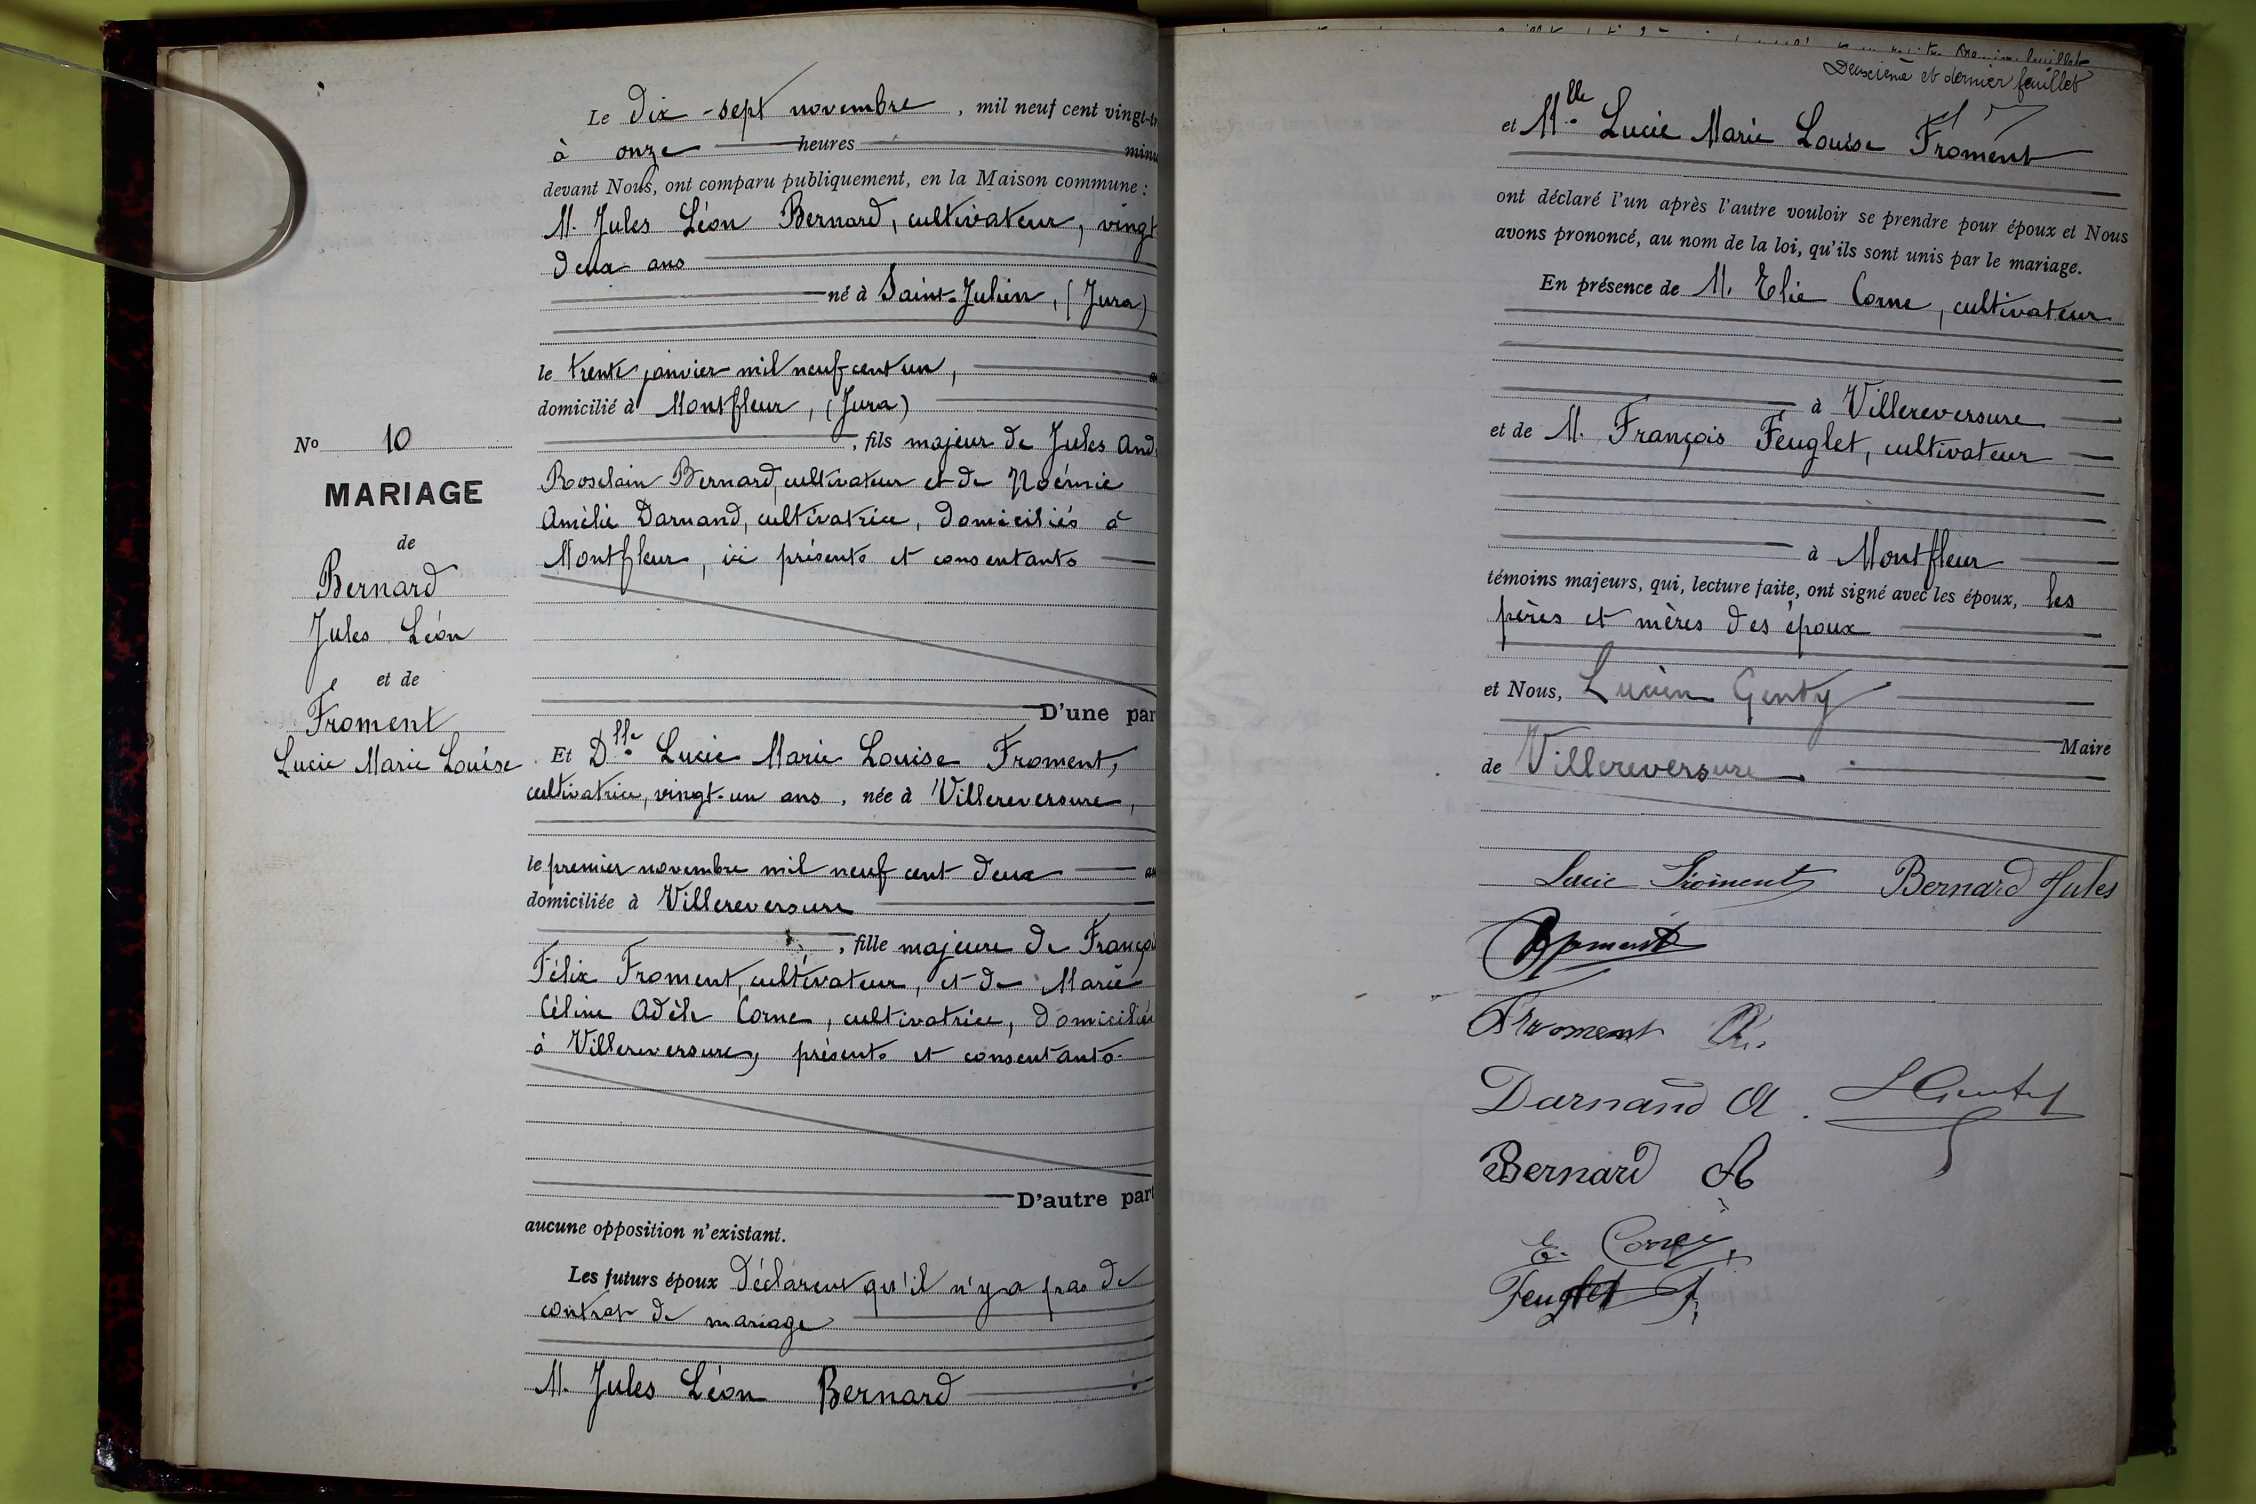 Le dix-sept novembre, mil neuf cent vingt-tr
à onze heures minu
devant Nous, ont comparu publiquement, en la Maison commune :
M. Jules Léon Bernard, cultivateur, vingt
deux ans
né à Saint-Julien, (Jura)
le trente janvier mil neuf cent un,
domicilié à Montfleur, (Jura)
, fils majeur de Jules And
Roselain Bernard, cultivateur et de Noémie
Amélie Darnand, cultivatrice, domiciliés à
Montfleur, ici présents et consentants
D'une par
No 10
MARIAGE
de
Bernard
Jules Léon
et de
Froment
Lucie Marie Louise
Et Dlle Lucie Marie Louise Froment,
cultivatrice, vingt-un ans, née à Villereversure,
le premier novembre mil neuf cent deux
domiciliée à Villereversure
, fille majeure de Françoi
Félix Froment, cultivateur, et de Marie
Céline Adèle Corne, cultivatrice, domicilié
à Villereversure, présents et consentants
D'autre part
aucune opposition n'existant.
Les futurs époux déclarent qu'il n'y a pas de
contrat de mariage
M. Jules Léon Bernard
Deuxième et dernier feuillet
et Mlle Lucie Marie Louise Froment
ont déclaré l'un après l'autre vouloir se prendre pour époux et Nous
avons prononcé, au nom de la loi, qu'ils sont unis par le mariage.
En présence de M. Elie Corne, cultivateur
à Villereversure
et de M. François Feuglet, cultivateur
à Montfleur
témoins majeurs, qui, lecture faite, ont signé avec les époux, les
pères et mères des époux
et Nous, Lucien Genty
Maire
de Villereversure
Lucie Froment Bernard Jules
Froment
Darnand A. LGenty
Bernard A
E. Corne
Feuglet F.